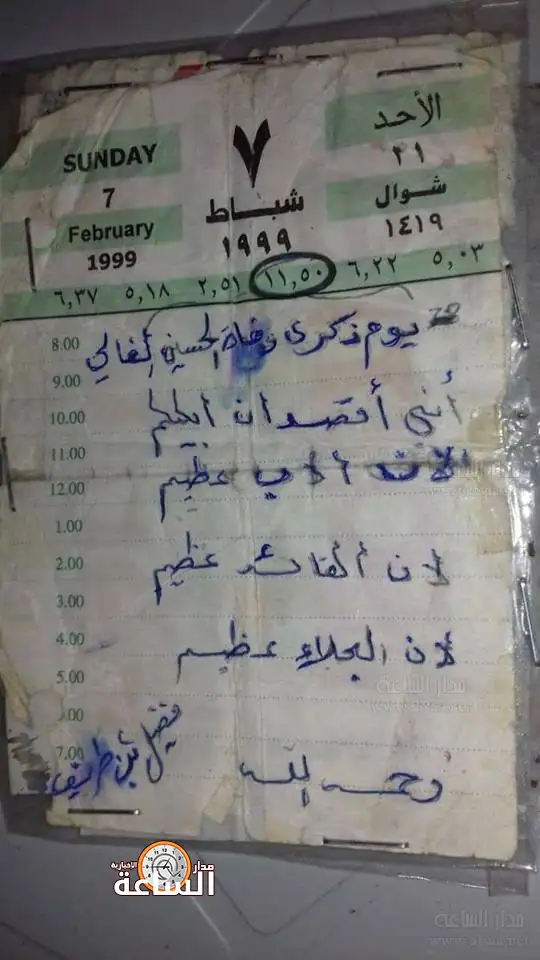 SUNDAY
7
February
1999
٧
شباط
١٩٩٩
الأحد
٢١
شوال
١٤١٩
٥,٠٣ ٦,٢٢ ١١,٥٠ ٢,٥١ ٥,١٨ ٦,٣٧
8.00
يوم ذكرى وفاة الحسين الغالي
9.00
أنني أقصد ان أبكيكم
10.00
11.00
لان الاب عظيم
12.00
1.00
لان القائد عظيم
2.00
3.00
لان الجلاء عظيم
4.00
5.00
6.00
7.00
رحمه الله
فيصل بن طريف
مدار
الاخبارية
الساعة
مدار الساعة
مدار الساعة